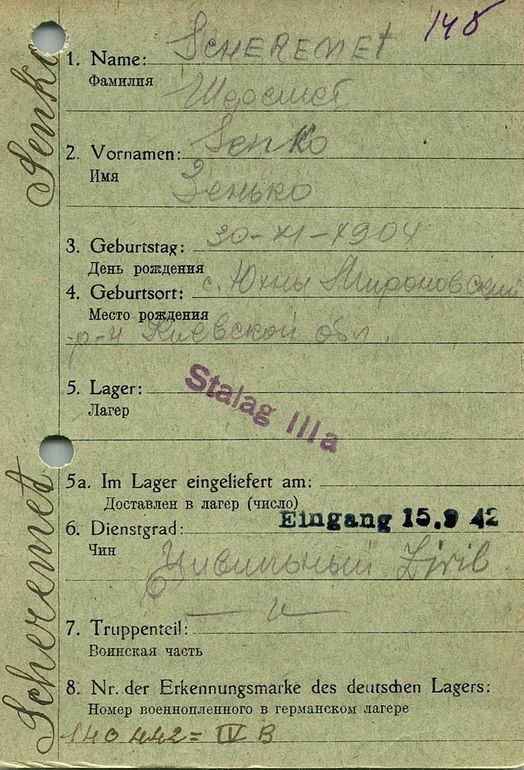 148
Senko
Scheremet
1. Name: SCHEREMET
Фамилия
Шеремет
2. Vornamen: Senko
Имя
Зенько
3. Geburtstag: 30-XI-1904
День рождения
4. Geburtsort: с. Юхны Мироновский
Место рождения
р-н Киевской обл.
5. Lager: Stalag IIIa
Лагер
5a. Im Lager eingeliefert am:
Доставлен в лагер (число)
Eingang 15.9 42
6. Dienstgrad:
Чин
Цивильный Zivil
7. Truppenteil:
Воинская часть
8. Nr. der Erkennungsmarke des deutschen Lagers:
Номер военнопленного в германском лагере
140442= IV B